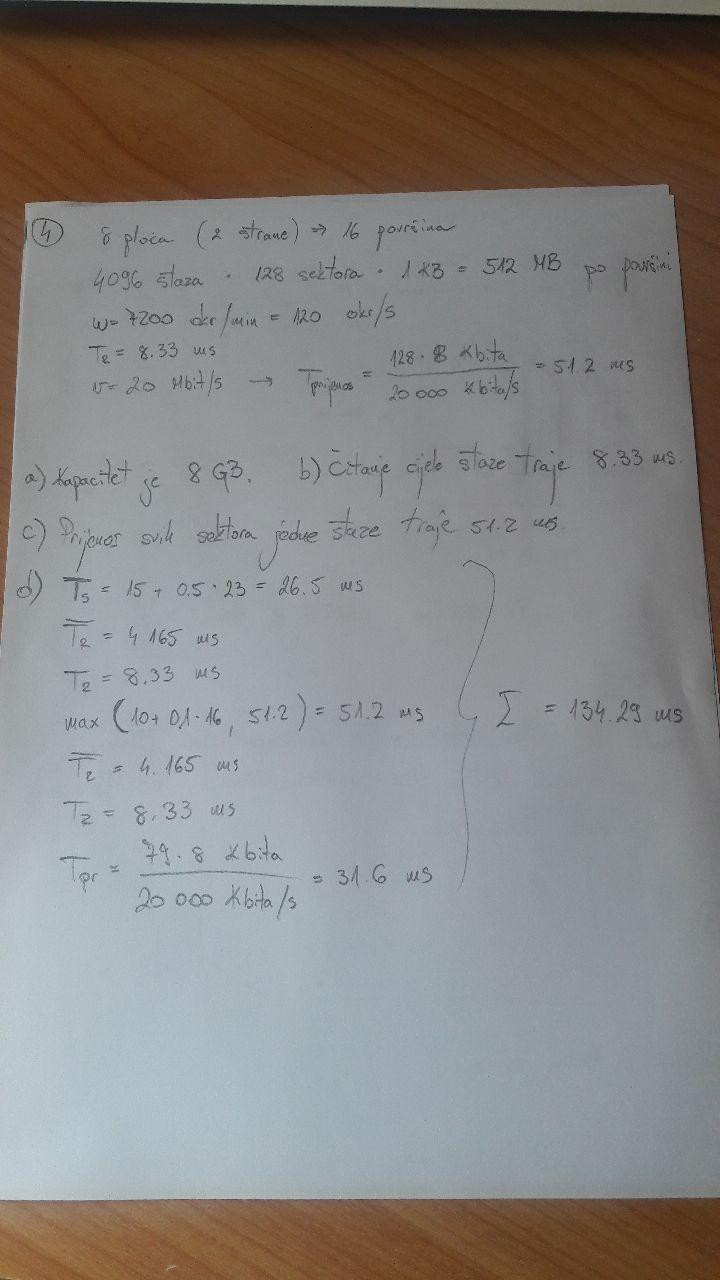 4 8 ploča (2 strane) => 16 površina
4096 staza · 128 sektora · 1 KB = 512 MB po površini
ω = 7200 okr/min = 120 okr/s
TR = 8.33 ms
v = 20 Mbit/s → Tprijenos = 128 · 8 Kbita / 20 000 Kbita/s = 51.2 ms
a) Kapacitet je 8 GB. b) Čitanje cijele staze traje 8.33 ms.
c) Prijenos svih sektora jedne staze traje 51.2 ms.
d) Ts = 15 + 0.5 · 23 = 26.5 ms
TR = 4.165 ms
TR = 8.33 ms
max (10 + 0,1 · 16, 51.2) = 51.2 ms Σ = 134.29 ms
TR = 4.165 ms
TR = 8.33 ms
Tpr = 79 · 8 Kbita / 20 000 Kbita/s = 31.6 ms